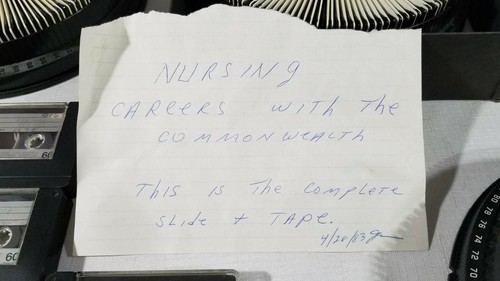 NURSING
CAREERS WITH THE
COMMONWEALTH
THIS IS THE COMPLETE
SLIDE + TAPE.
4/20/83
60
60
80 78 76 74 72 70